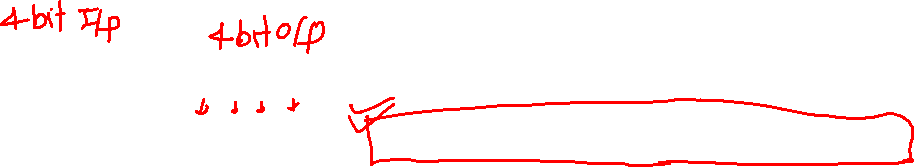 4-bit I/p
4-bit O/p